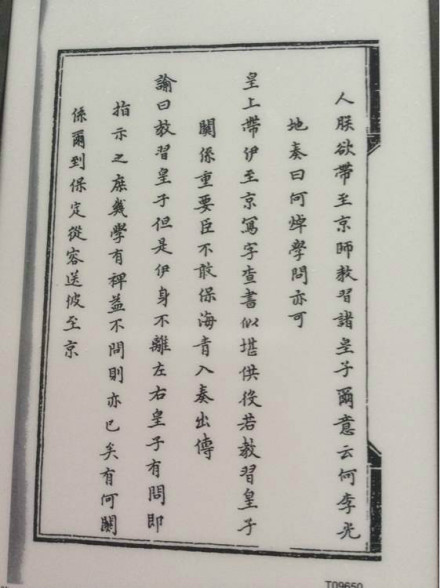 人朕欲帶至京師教習諸皇子爾意云何李光
地奏曰何焯學問亦可
皇上帶伊至京寫字查書似堪供役若教習皇子
關係重要臣不敢保海青入奏出傳
諭曰教習皇子但是伊身不離左右皇子有問即
指示之庶幾學有裨益不問則亦已矣有何關
係爾到保定從容送彼至京
T09650